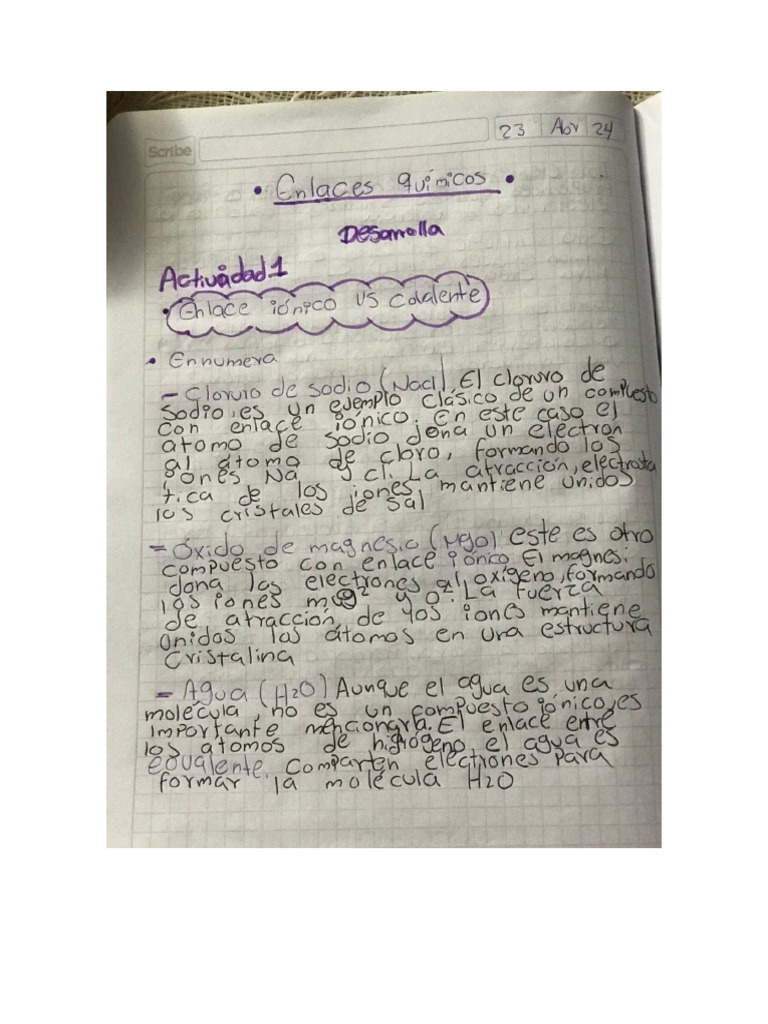 Scribe
23 Abr 24
• Enlaces químicos •
Desarrolla
Actividad 1
• Enlace iónico VS Covalente
• Ennumera
- Cloruro de sodio (Nacl). El cloruro de
Sodio, es un ejemplo clásico de un compuesto
con enlace iónico. En este caso el
átomo de sodio dona un electron
al átomo de cloro, formando los
iones Na y cl. La atracción, electrosta
tica de los iones mantiene unidos
los cristales de sal
- Óxido de magnesio (Mgo) este es otro
compuesto con enlace iónico El magnesi.
dona las electrones al oxígeno, formando
los iones mg² y o². La fuerza
de atracción, de los iones mantiene
unidos los átomos en una estructura
Cristalina
- Agua (H2O) Aunque el agua es una
molécula, no es un compuesto iónico, es
importante mencionarla. El enlace entre
los atomos de hidrógeno, el agua es
covalente. Comparten electrones para
formar la molécula H2O